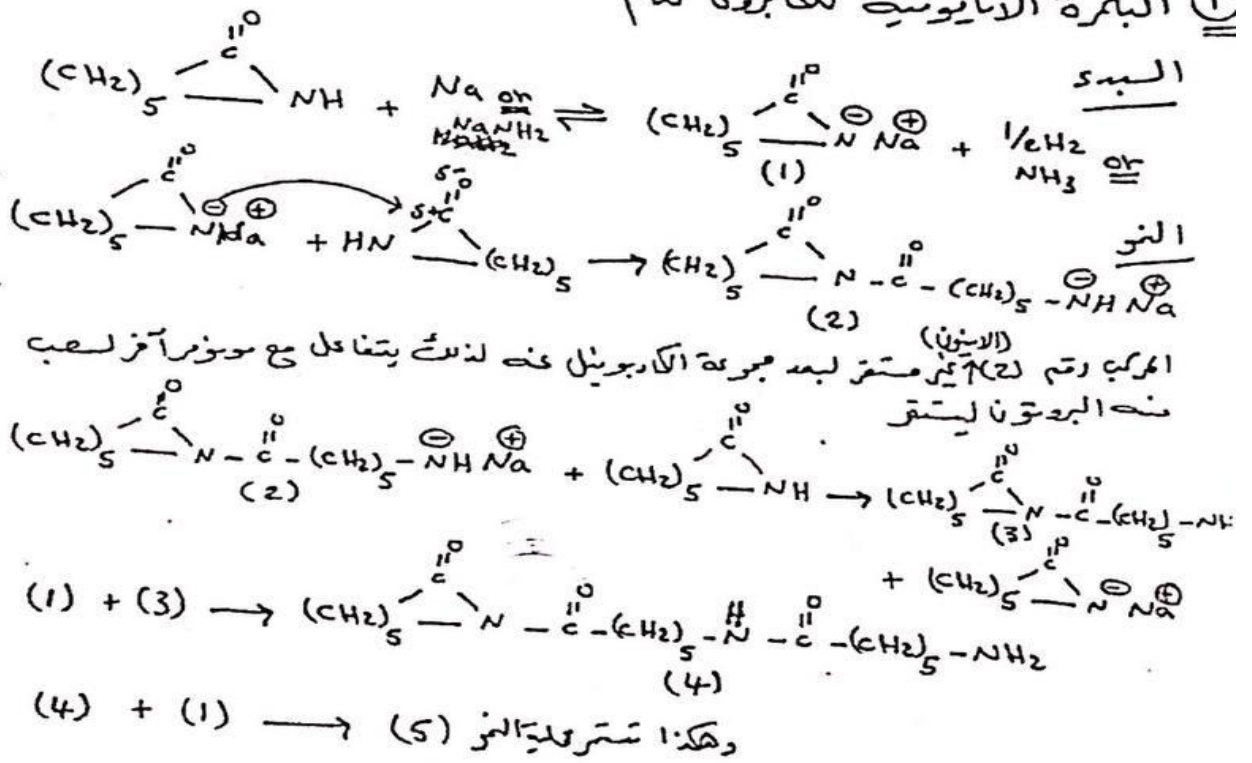 ① البلمرة الانايونية للكابرولاكتام
البدء
(CH2)5 C=O NH + Na or NaNH2 ⇌ (CH2)5 C=O N⊖ Na⊕ + 1/2H2 or NH3
(1)
النمو
(CH2)5 C=O N⊖Na⊕ + HN δ+C=Oδ- (CH2)5 → (CH2)5 C=O N - C=O - (CH2)5 - N⊖H Na⊕
(2)
(الانيون)
المركب رقم (2) غير مستقر لبعد مجموعة الكاربونيل عنه لذلك يتفاعل مع مونومر آخر لسحب
منه البروتون ليستقر
(CH2)5 C=O N - C=O - (CH2)5 - N⊖H Na⊕ + (CH2)5 C=O NH → (CH2)5 C=O N - C=O - (CH2)5 - NH
(2) (3)
+ (CH2)5 C=O N⊖ Na⊕
(1) + (3) → (CH2)5 C=O N - C=O - (CH2)5 - NH - C=O - (CH2)5 - NH2
(4)
(4) + (1) → (5) وهكذا تستمر عملية النمو